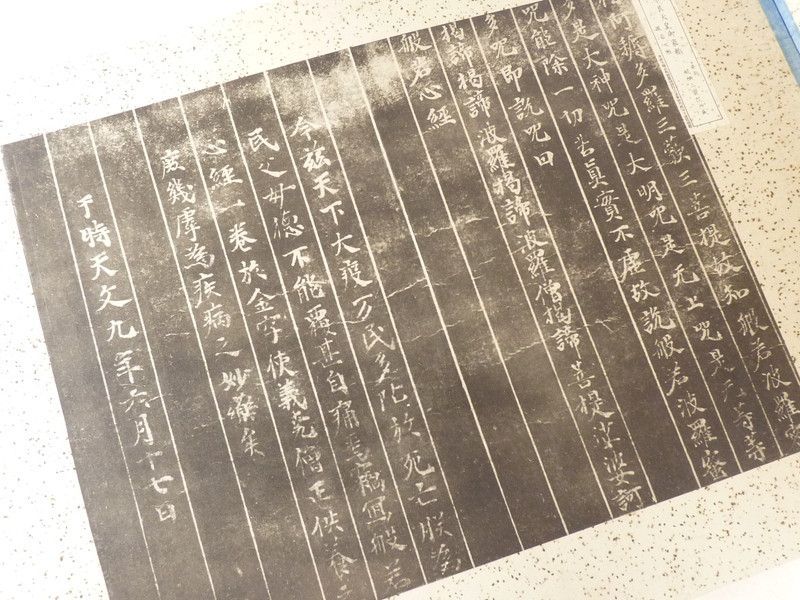 阿耨多羅三藐三菩提故知般若波羅蜜
多是大神呪是大明呪是无上呪是无等等
呪能除一切苦真實不虚故説般若波羅蜜
多呪即説呪曰
揭諦揭諦 波羅揭諦 波羅僧揭諦 菩提莎婆訶
般若心經
今茲天下大疫万民多阽於死亡朕為
民父母徳不能覆甚自痛焉竊写般若
心經一巻於金字使義堯僧正供養之
庶幾虖為疾病之妙藥矣
于時天文九年六月十七日